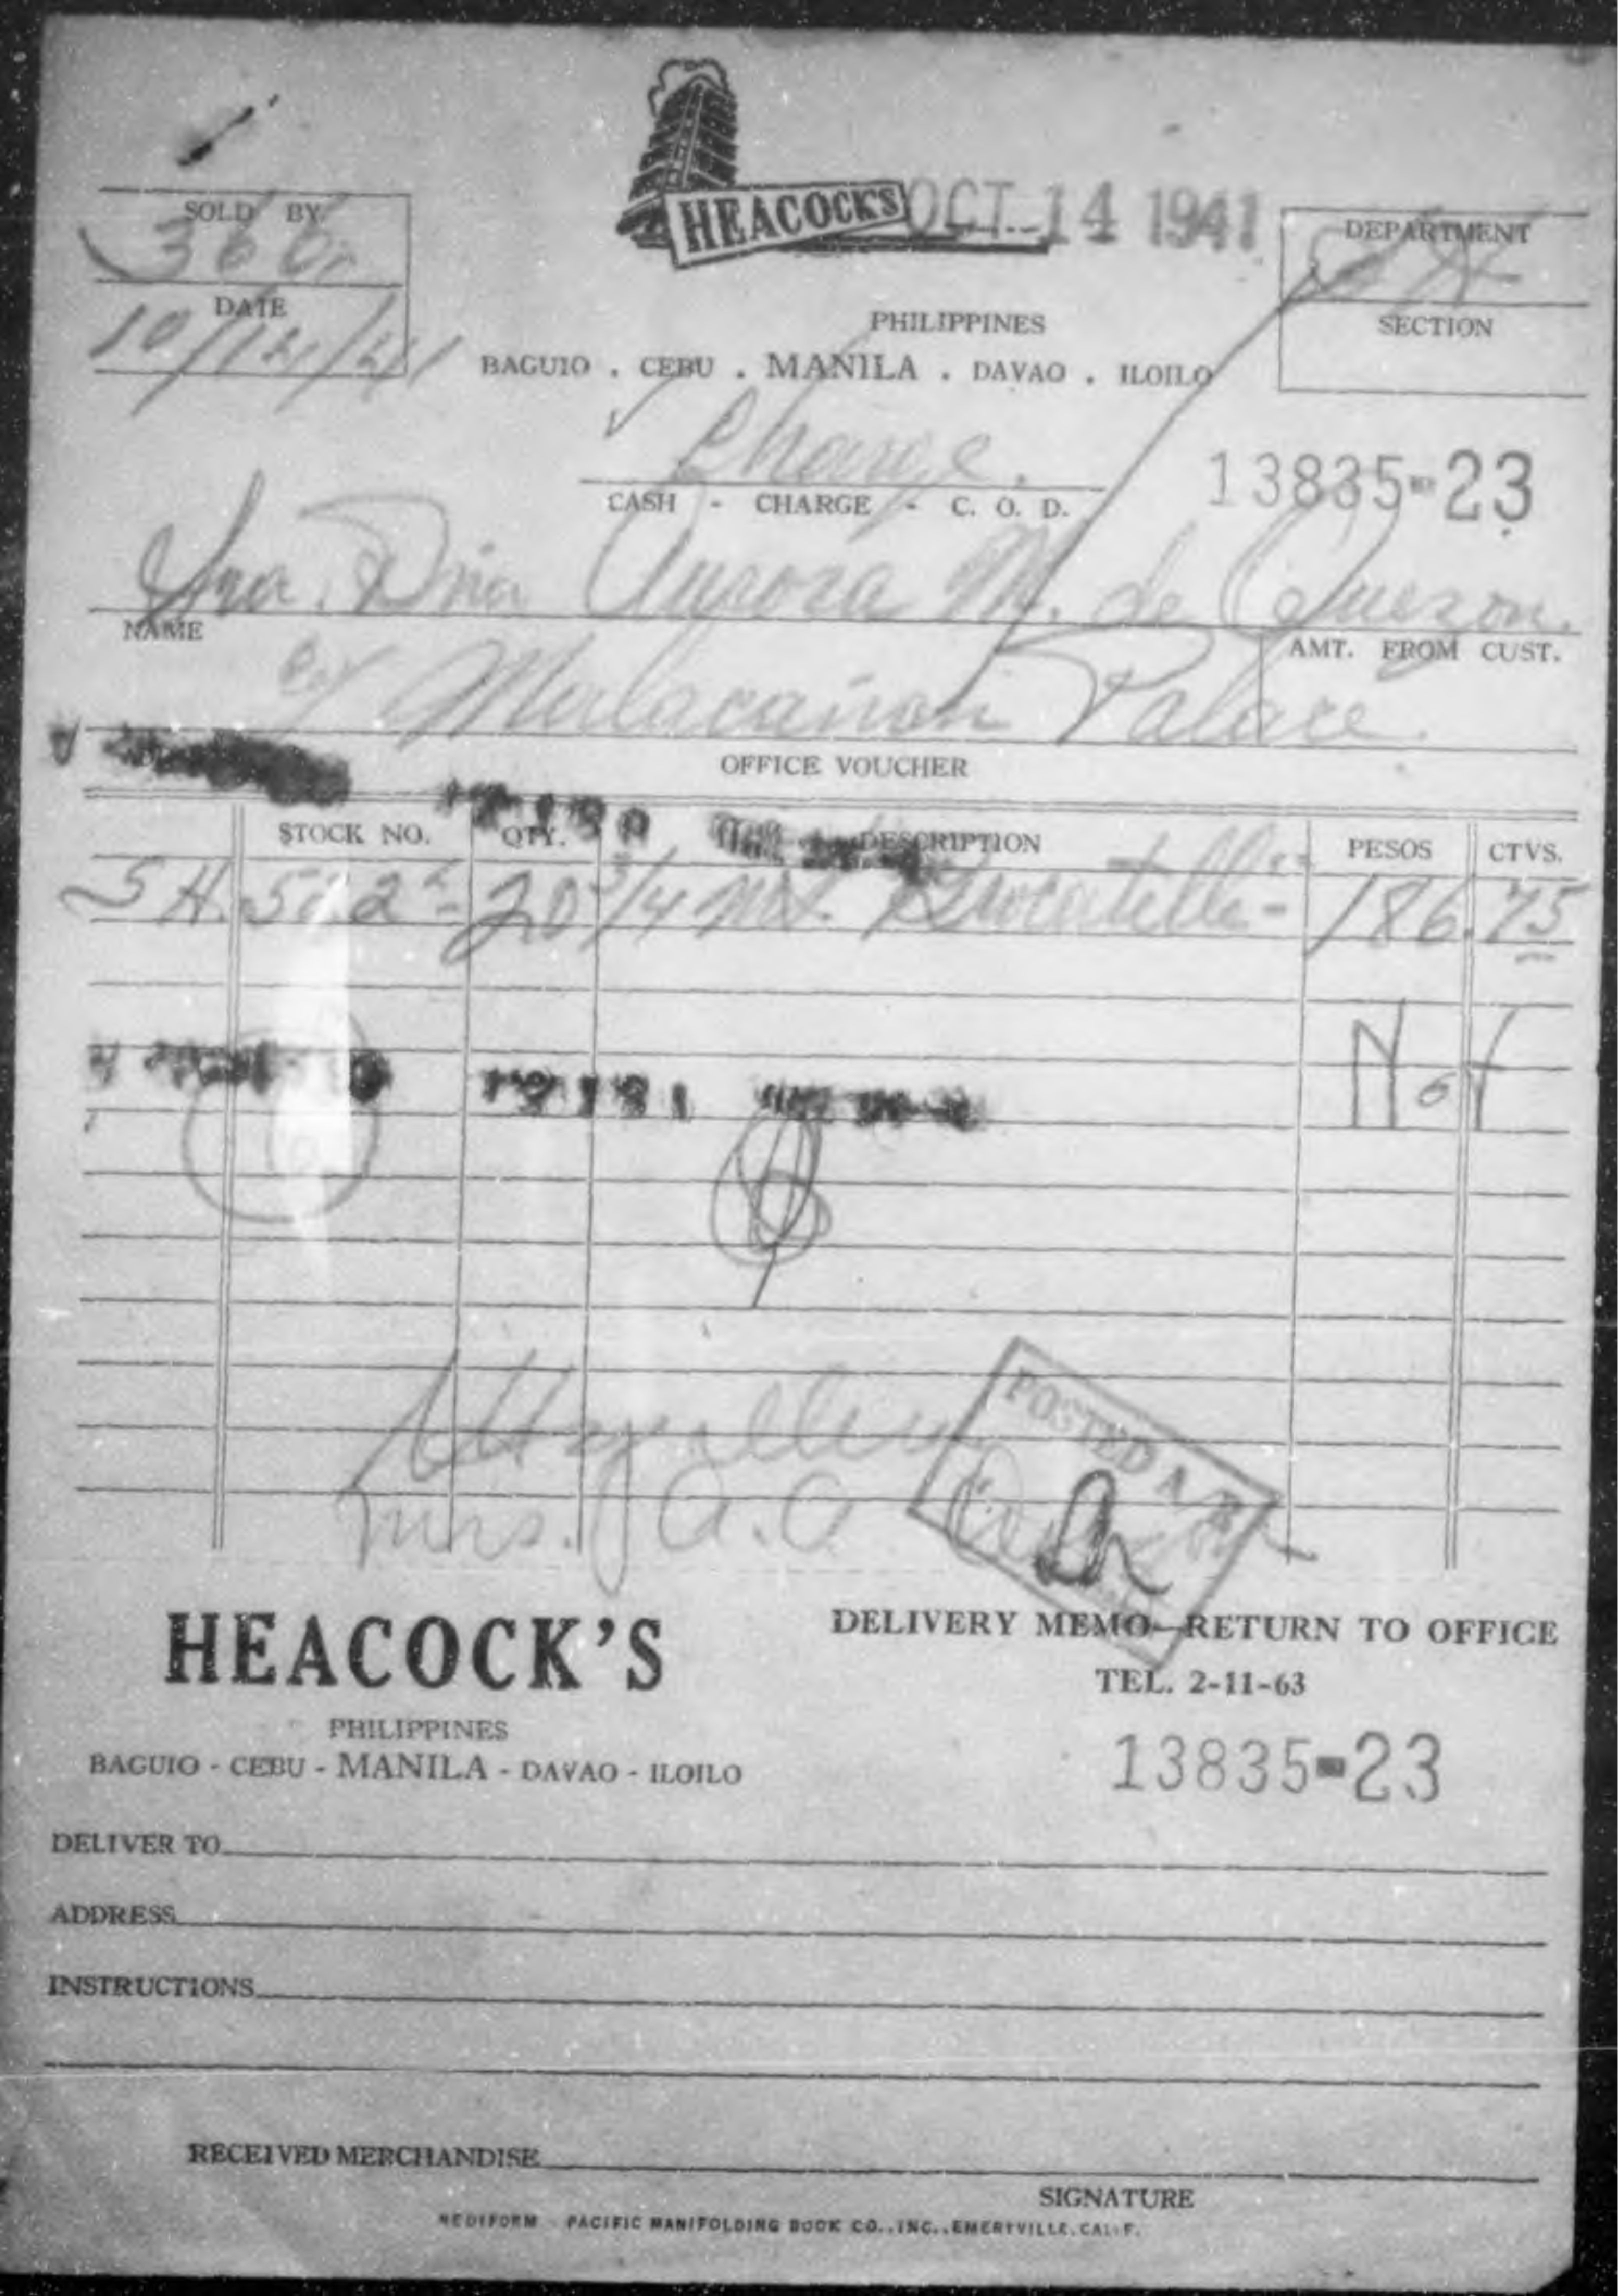 HEACOCKS
OCT 14 1941
SOLD BY
DATE
DEPARTMENT
SECTION
PHILIPPINES
BAGUIO . CEBU . MANILA . DAVAO . ILOILO
Charge.
CASH - CHARGE - C. O. D.
13835-23
Sra. Dña Aurora M. de Quezon.
NAME
AMT. FROM CUST.
Malacañan Palace.
OFFICE VOUCHER
STOCK NO. QTY. DESCRIPTION PESOS CTVS.
SH. 20 3/4 Brocatelle - 186.75
Net
POSTED A R
Mrs. A.
HEACOCK'S
PHILIPPINES
BAGUIO - CEBU - MANILA - DAVAO - ILOILO
DELIVERY MEMO—RETURN TO OFFICE
TEL. 2-11-63
13835-23
DELIVER TO
ADDRESS
INSTRUCTIONS
RECEIVED MERCHANDISE
SIGNATURE
REDIFORM PACIFIC MANIFOLDING BOOK CO., INC., EMERYVILLE, CALIF.